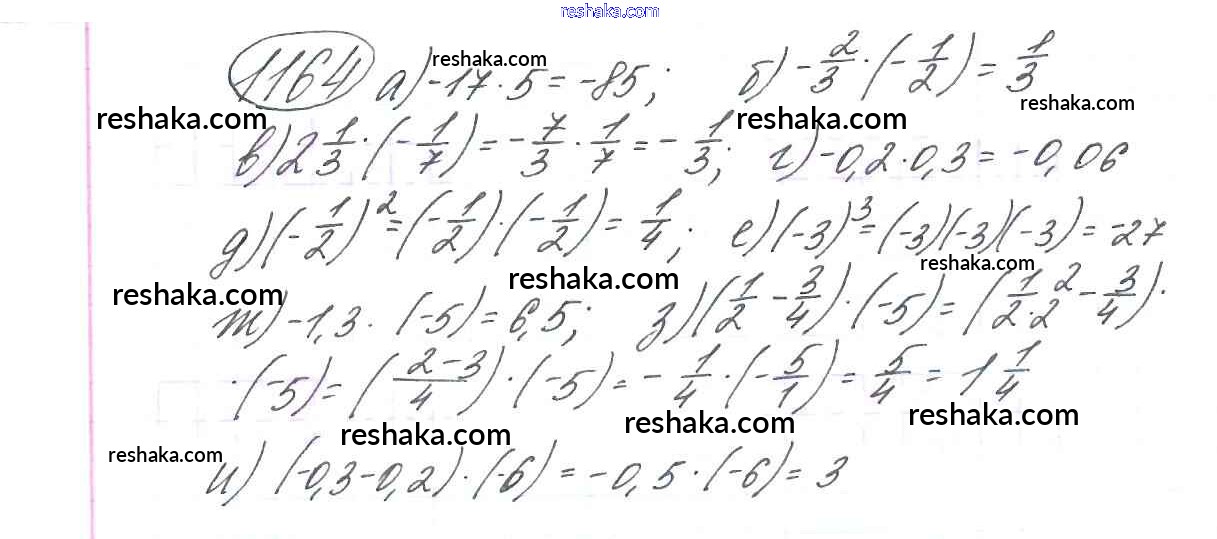 reshaka.com
1164 а) -17 · 5 = -85; б) -2/3 · (-1/2) = 1/3
reshaka.com
reshaka.com
reshaka.com reshaka.com
в) 2 1/3 · (-1/7) = -7/3 · 1/7 = -1/3; г) -0,2 · 0,3 = -0,06
д) (-1/2)² = (-1/2) · (-1/2) = 1/4; е) (-3)³ = (-3)(-3)(-3) = -27
reshaka.com
reshaka.com reshaka.com
ж) -1,3 · (-5) = 6,5; з) (1/2 - 3/4) · (-5) = (1/2·2 ² - 3/4) ·
· (-5) = (2-3/4) · (-5) = -1/4 · (-5/1) = 5/4 = 1 1/4
reshaka.com reshaka.com reshaka.com
reshaka.com
и) (-0,3-0,2) · (-6) = -0,5 · (-6) = 3